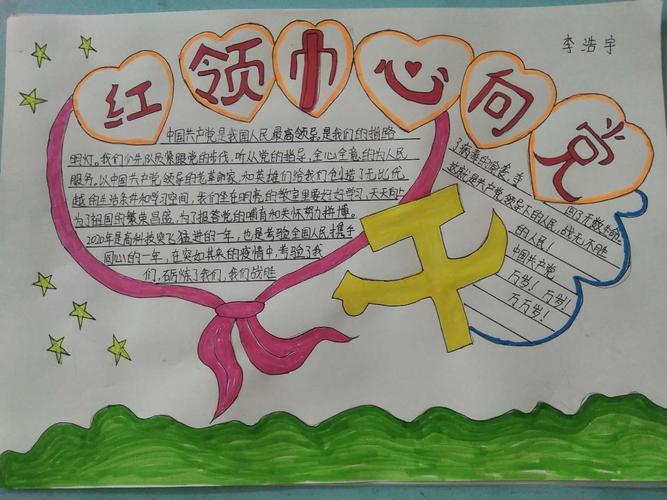 红领巾心向党
李浩宇
中国共产党是我国人民最高领导,是我们的指路
明灯。我们少先队员要跟党的步伐,听从党的指导,全心全意的为人民
服务。以中国共产党领导的老革命家和英雄们给我们创造了无比优
越的生活条件和学习空间,我们坐在明亮的教室里要好好学习,天天向上
为了祖国的繁荣昌盛,为了报答党的哺育和关怀努力拼搏。
2020年是高科技突飞猛进的一年,也是考验全国人民携手
同心的一年,在突如其来的疫情中,考验了我
们,砺炼了我们,我们战胜
了病毒的
回了无数
这就是共产党领导下的人民,战无不胜
的人民!
中国共产党
万岁!万岁!
万万岁!